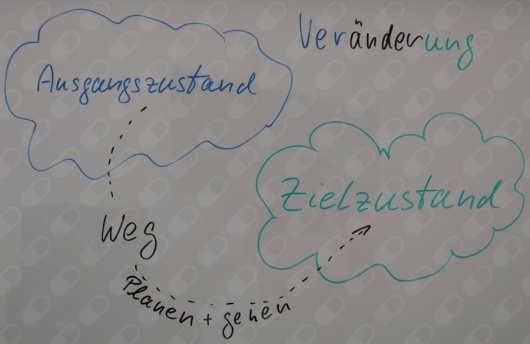 Veränderung
Ausgangszustand
Zielzustand
Weg
Planen + gehen